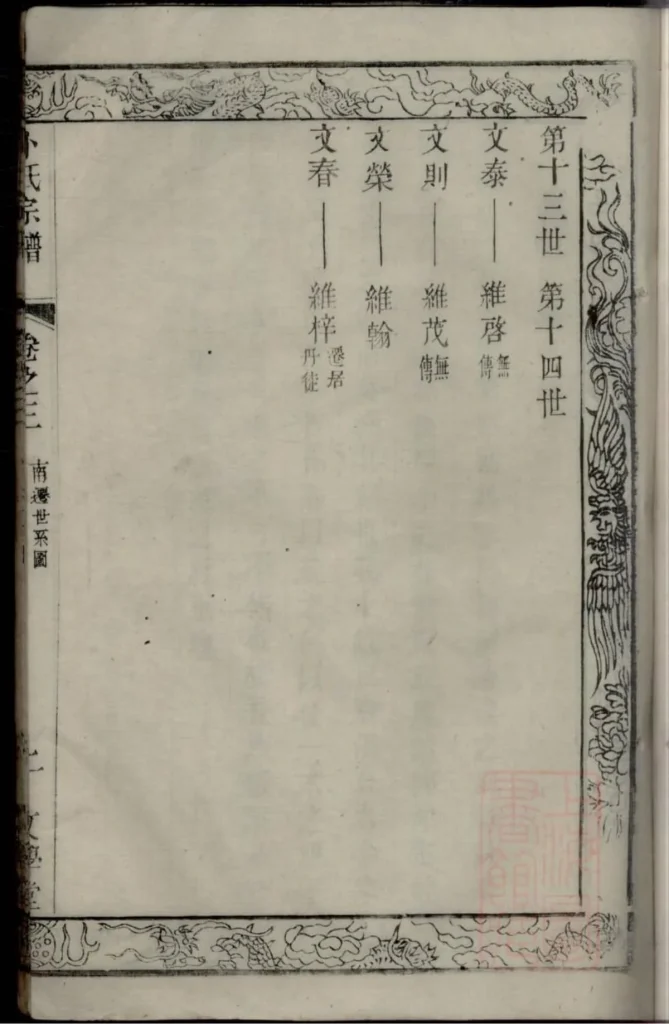 第十三世 第十四世
文泰 維啓 無傳
文則 維茂 無傳
文榮 維翰
文春 維梓 遷居丹徒
卞氏宗譜
卷之三
南遷世系圖
文學堂